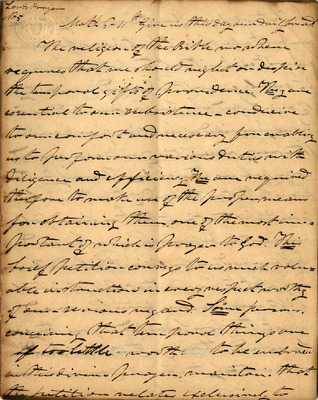 Lord's Prayer
105
Matt: 6. 11th Give us this day our daily bread
The religion of the Bible no where
requires that we should neglect or despise
the temporal gifts of providence. They are
essential to our subsistence - conducive
to our comfort and necessary for enabling
us to perform our various duties with
diligence and efficiency. We are required
therefore to make use of the proper means
for obtaining them one of the most im-
portant of which is prayer to God. This
brief Petition conveys to us much valu-
able instruction in every respect worthy
of our serious regard. Some persons
conceiving that temporal things are
of too little worth to be
in the divine prayer, maintain that
the petition relates exclusively to